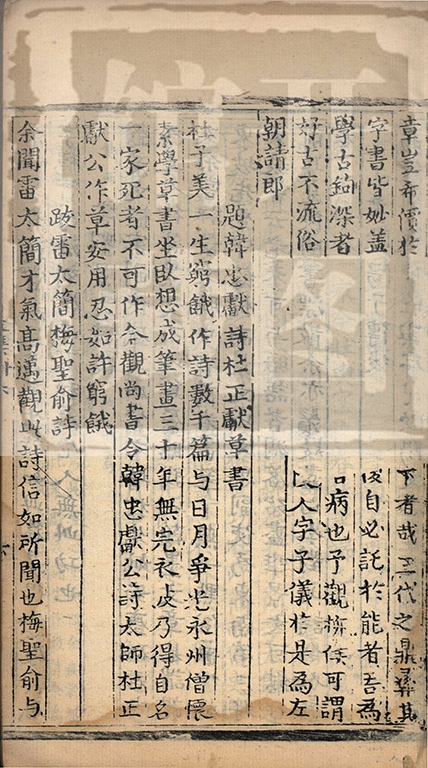 章豈希價於下者哉三代之鼎彝其
字書皆妙蓋自必託於能者吾為
學古鉤深者病也予觀
好古不流俗人字子儀於是為左
朝請郎
題韓忠獻詩杜正獻草書
杜子美一生窮餓作詩數千篇与日月爭光永州僧懷
素學草書坐臥想成筆畫三十年無完衣皮乃得自名
一家死者不可作今觀尚書令韓忠獻公詩太師杜正
獻公作草安用忍如許窮餓
跋雷太簡梅聖俞詩
余聞雷太簡才氣高邁觀此詩信如所聞也梅聖俞与